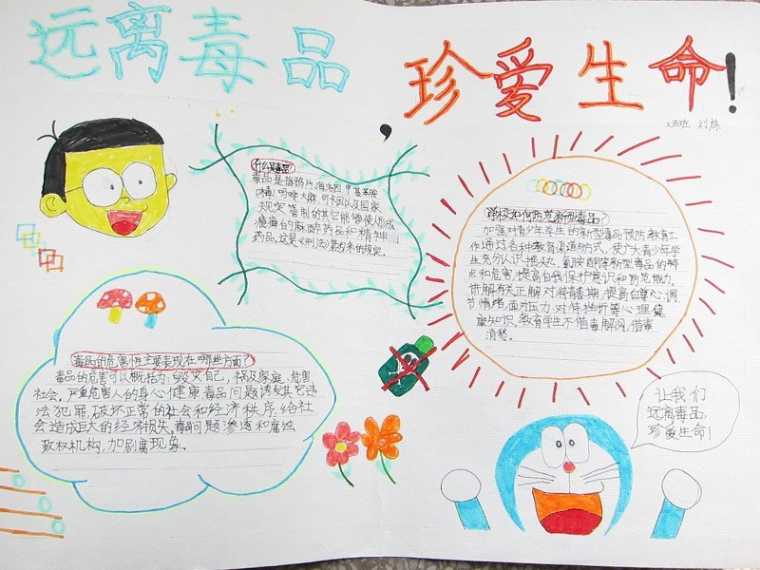 远离毒品
,珍爱生命!
什么是毒品
毒品是指鸦片,海洛因,甲基苯丙
胺,吗啡,大麻,可卡因以及国家
规定管制的其它能够使人形成
瘾癖的麻醉药品和精神
药品,这是《刑法》
学校如何防范新型毒品?
加强对青少年学生的新型毒品预防教育工
作通过各种教育渠道的方式,使广大青少年学
生充分认识摇头丸、氯胺酮等新型毒品的特
点和危害,提高自我保护意识和防范能力。
讲解有关正确对待青春期,提高自尊心,调
节情绪,面对压力,对待挫折等心理健
康知识,教育学生不借毒解闷,借毒
消愁。
毒品的危害性主要表现在哪些方面?
毒品的危害可以概括为:毁灭自己,祸及家庭、危害
社会,严重危害人的身心健康毒品问题诱发其它违
法犯罪,破坏正常的社会和经济秩序,给社
会造成巨大的经济损失。毒品问题渗透和腐蚀
政权机构,加剧腐败现象。
让我们
远离毒品,
珍爱生命!